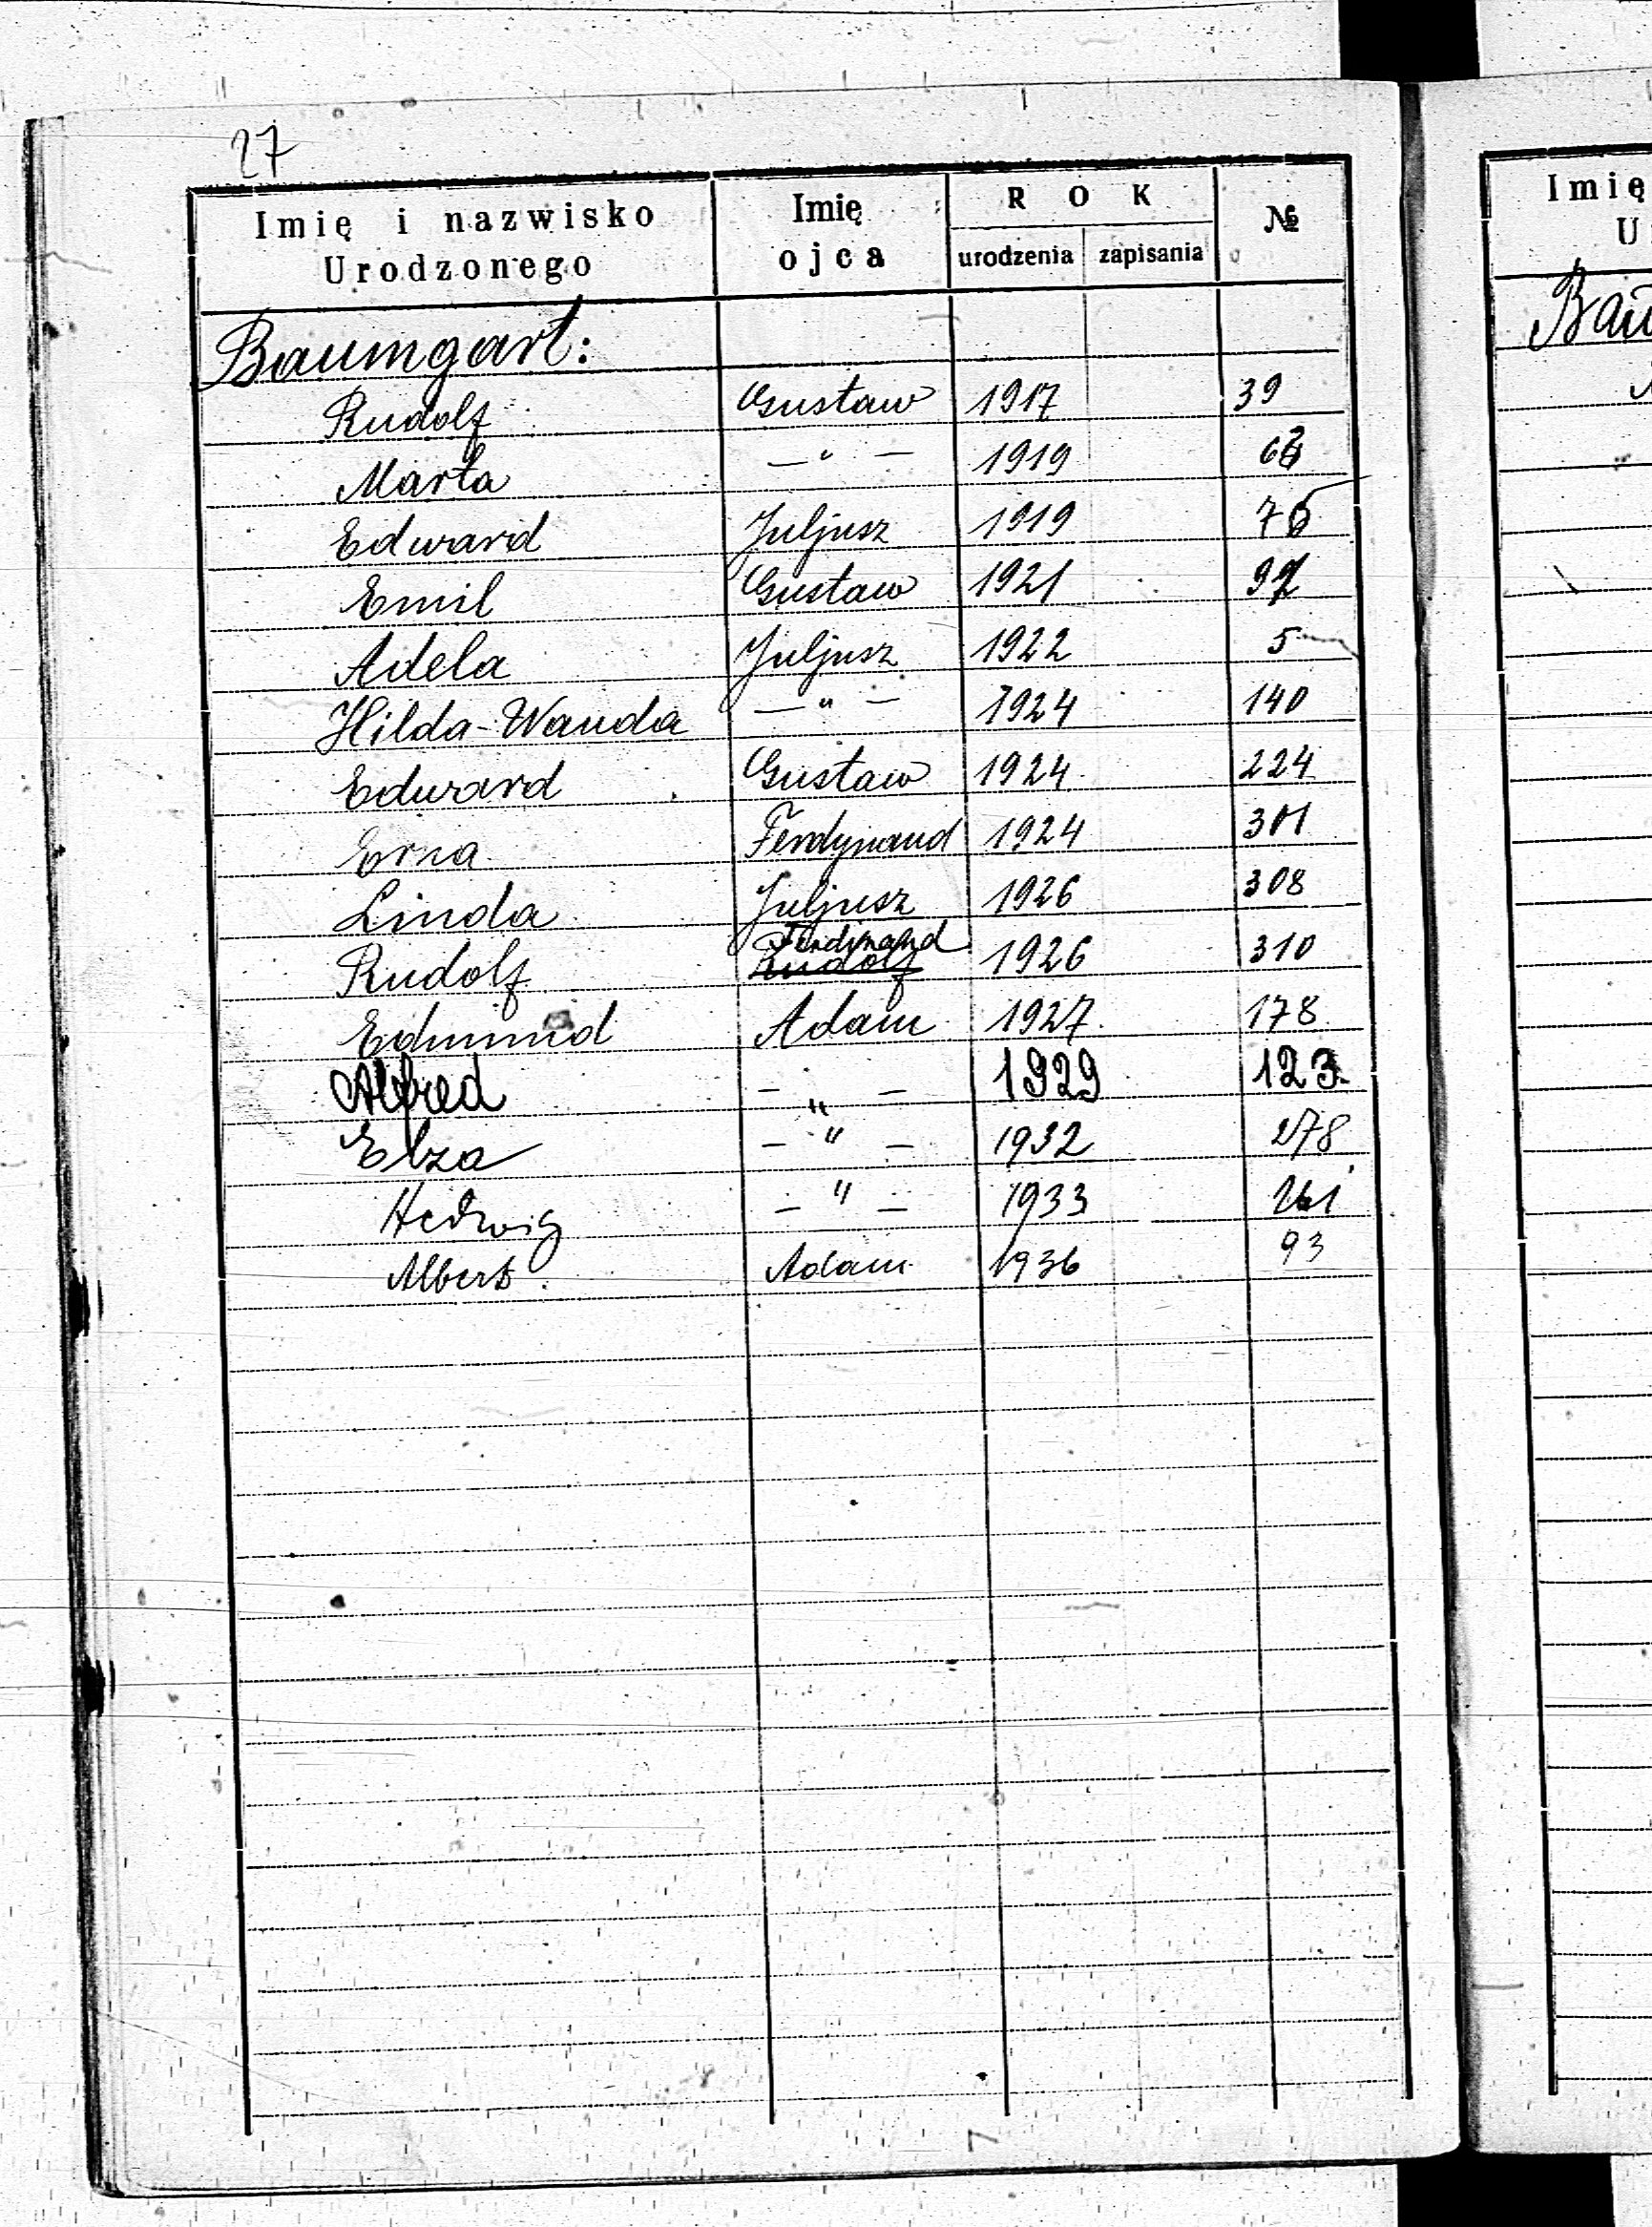 27
Imię i nazwisko Urodzonego Imię ojca ROK urodzenia zapisania №
Baumgart:
Rudolf Gustaw 1917 39
Marta — " — 1919
Edward Juljusz 1919
Emil Gustaw 1921
Adela Juljusz 1922 5
Hilda-Wanda — " — 1924 140
Edward Gustaw 1924 224
Erna Ferdynand 1924 301
Linda Juljusz 1926 308
Rudolf Ferdynand Rudolf 1926 310
Edmund Adam 1927 178
Alfred — " — 1929 123
Elza — " — 1932 278
Hedwig — " — 1933
Albert Adam 1936 93
Imię
U
Bau